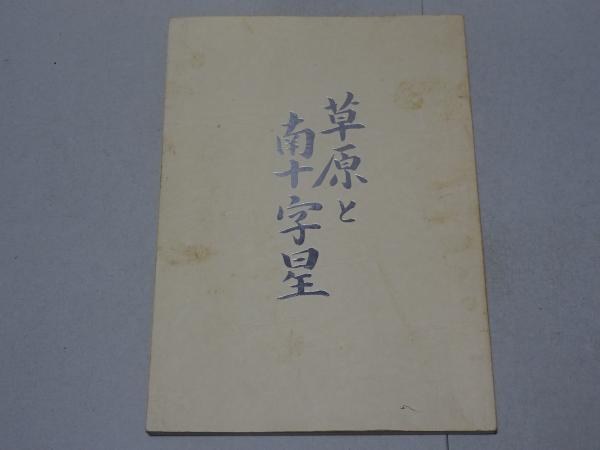 草原と
南十字星